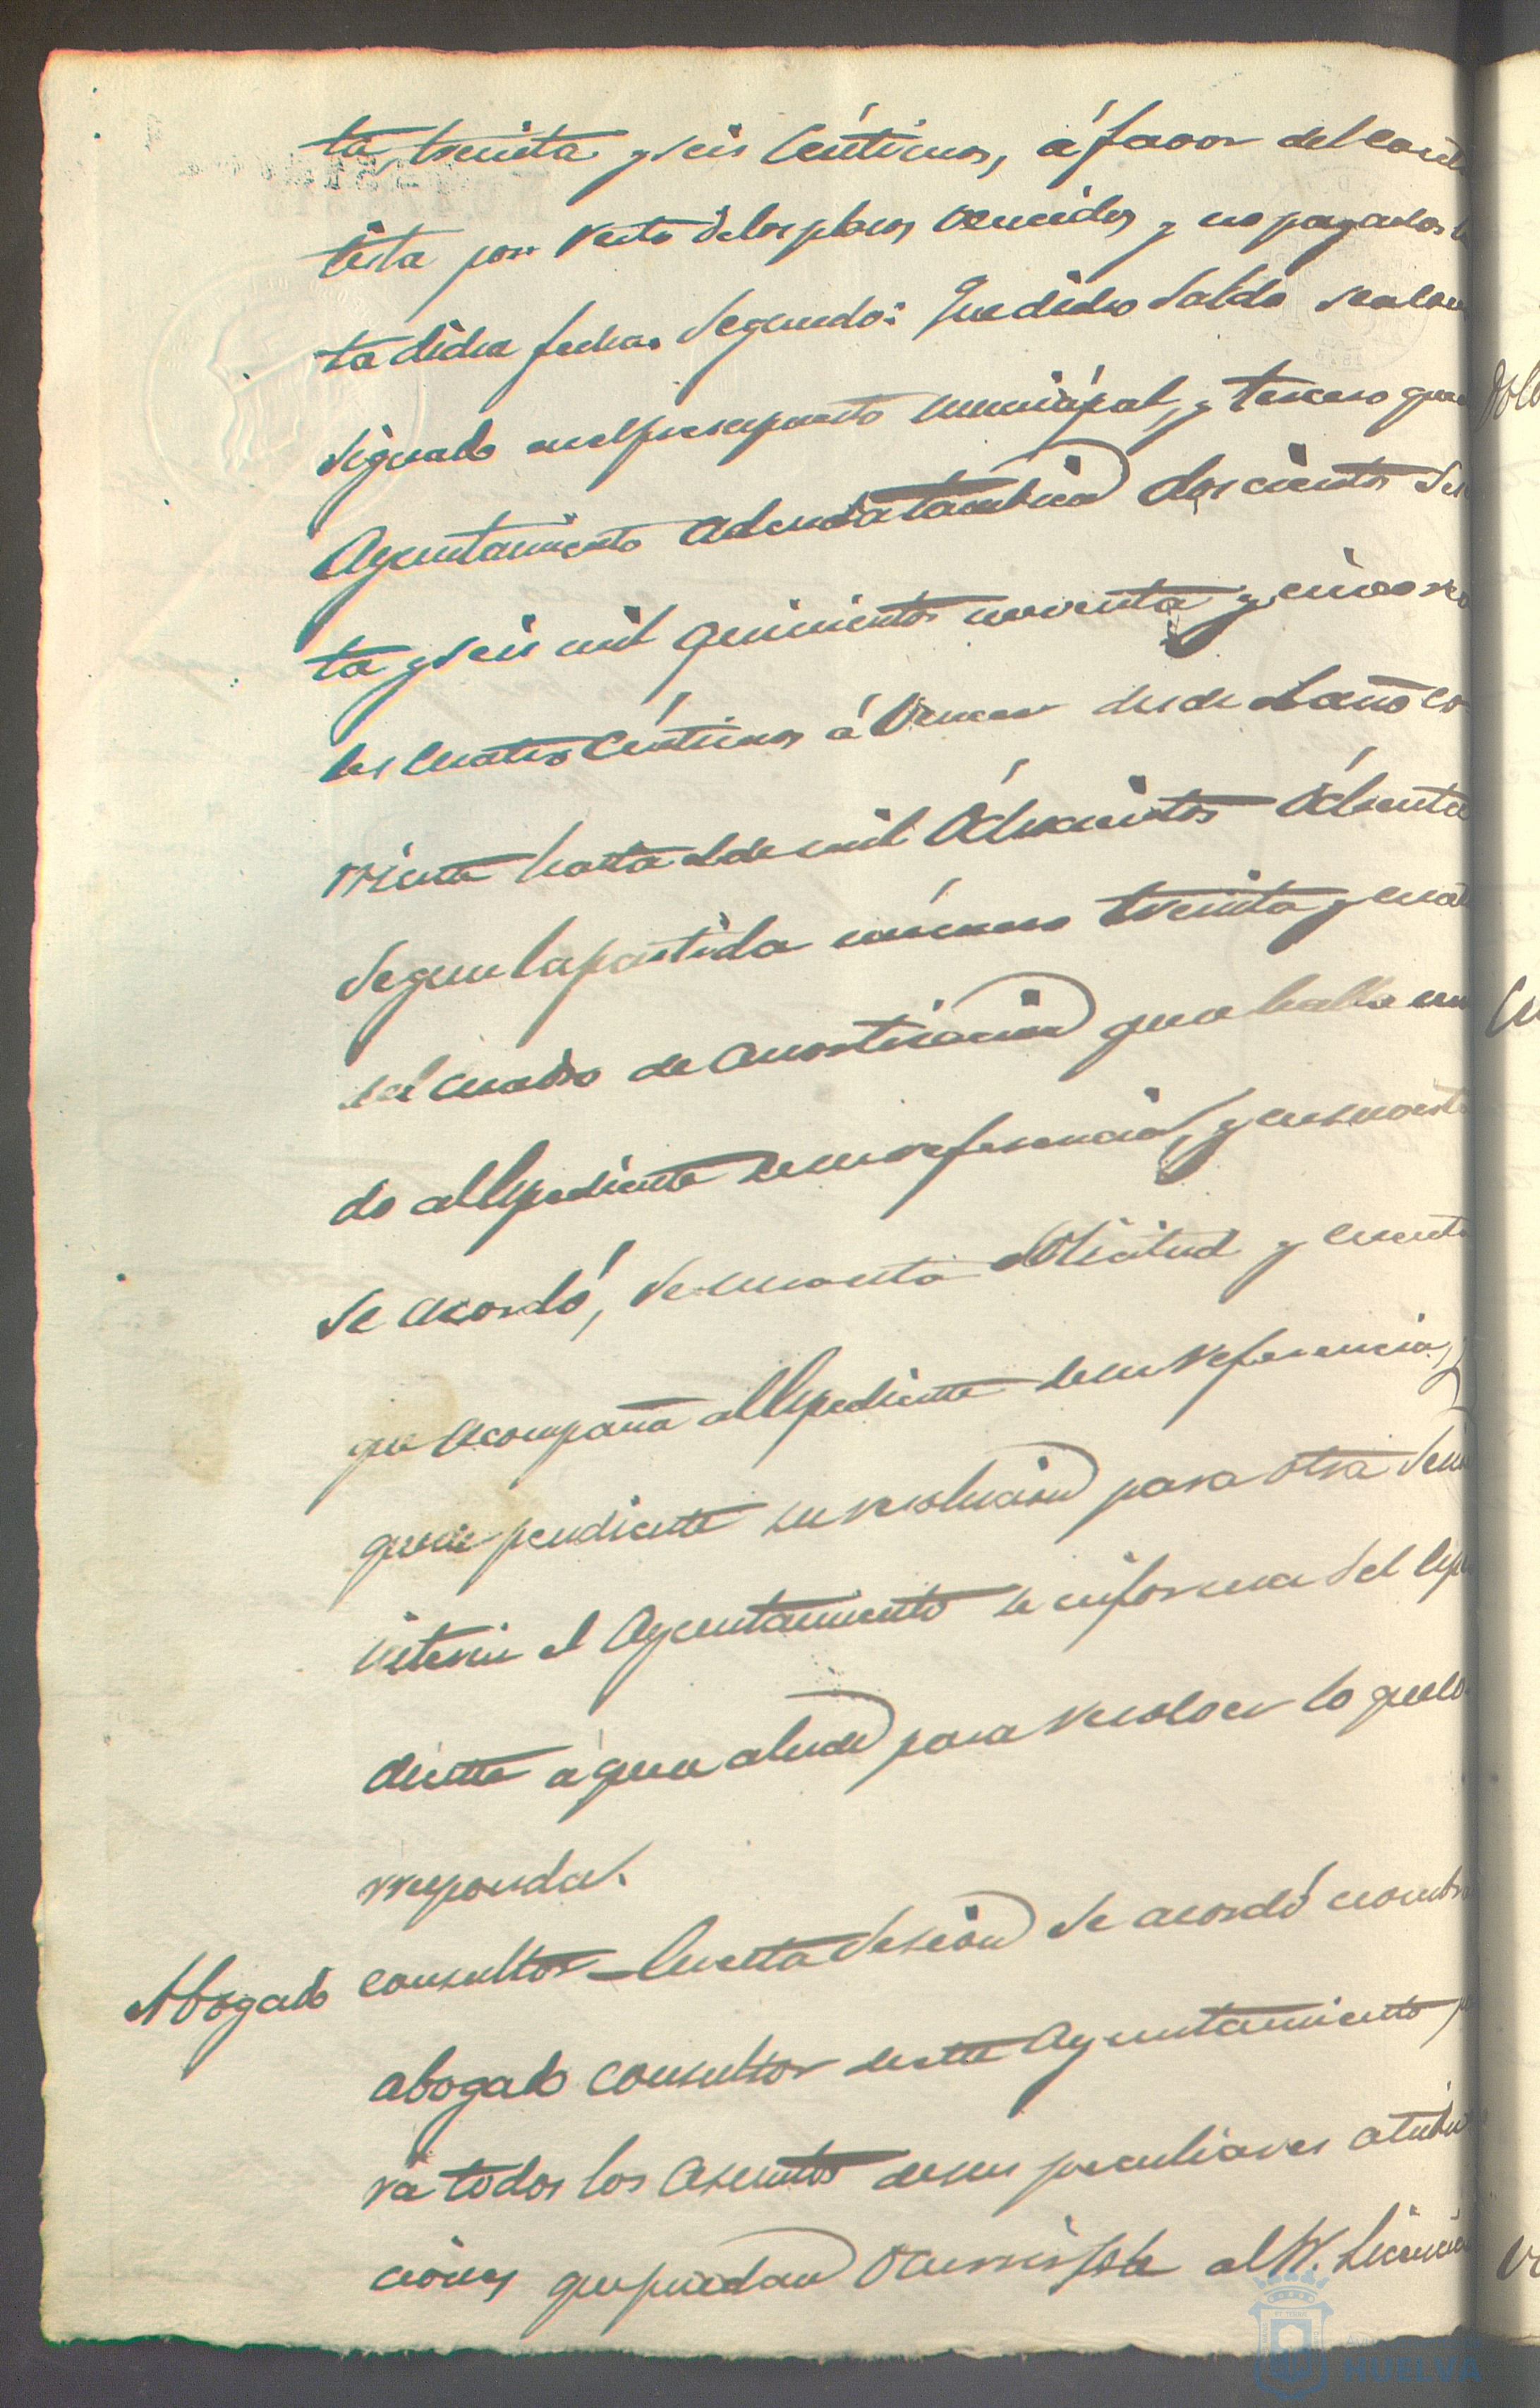 ta, treinta y seis céntimos, á favor del contra
tista por resto de los plazos vencidos y no pagados
ta dicha fecha. Segundo: Que dicho Saldo sea con
signado en el presupuesto municipal, y tercero que
Ayuntamiento adeuda tambien doscientos
ta y seis mil quinientos noventa y cinco
les cuatro céntimos á vencer desde el año co
rriente hasta el de mil ochocientos ochenta
segun la partida número treinta y cuat
del cuadro de amortizacion que se halla un
do al espediente de su referencia, y en su vista
se acordó, se una esta solicitud y cuenta
que acompaña al espediente de su referencia, y
quede pendiente su resolucion para otra
interin el Ayuntamiento se informa del espe
diente á que se alude para resolver lo que co
rresponda.
Abogado consultor - En esta sesion se acordó nombra
abogado consultor de este Ayuntamiento pa
ra todos los asuntos de sus peculiares atribu
ciones que puedan ocurrirsele al Sr. Licencia
HUELVA